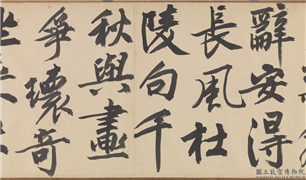 辭安得
長風杜
陵句千
秋與畫
爭瓌奇
國立故宮博物院